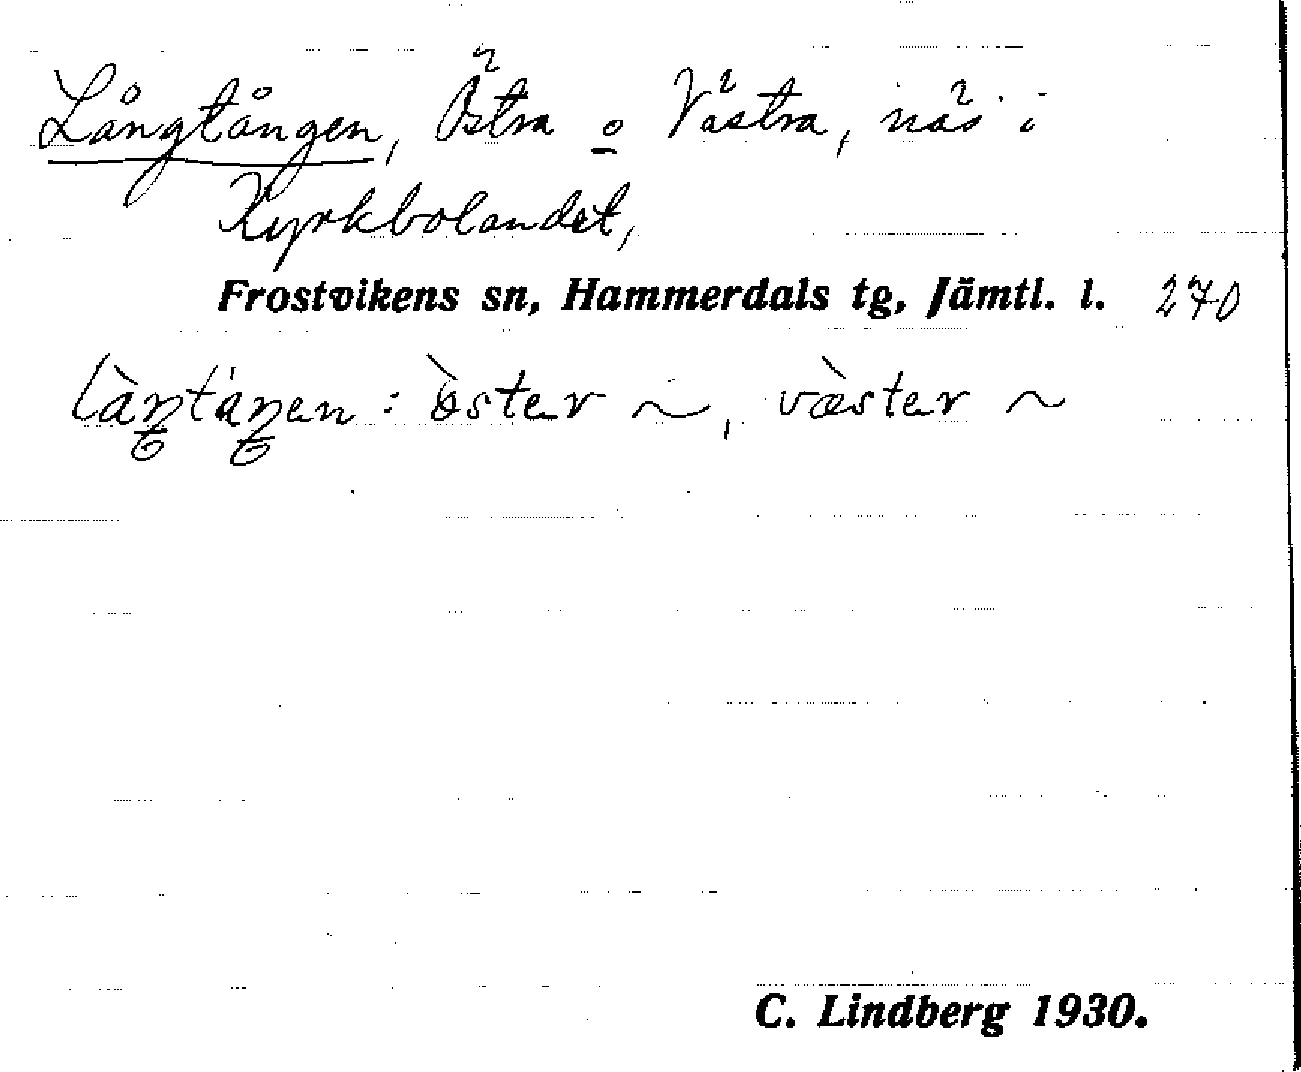 Långtången, Östra o Västra, näs i
Kyrkbolandet,
Frostvikens sn, Hammerdals tg, Jämtl. l. 270
làŋtáŋen : òster ~, væ̀ster ~
C. Lindberg 1930.